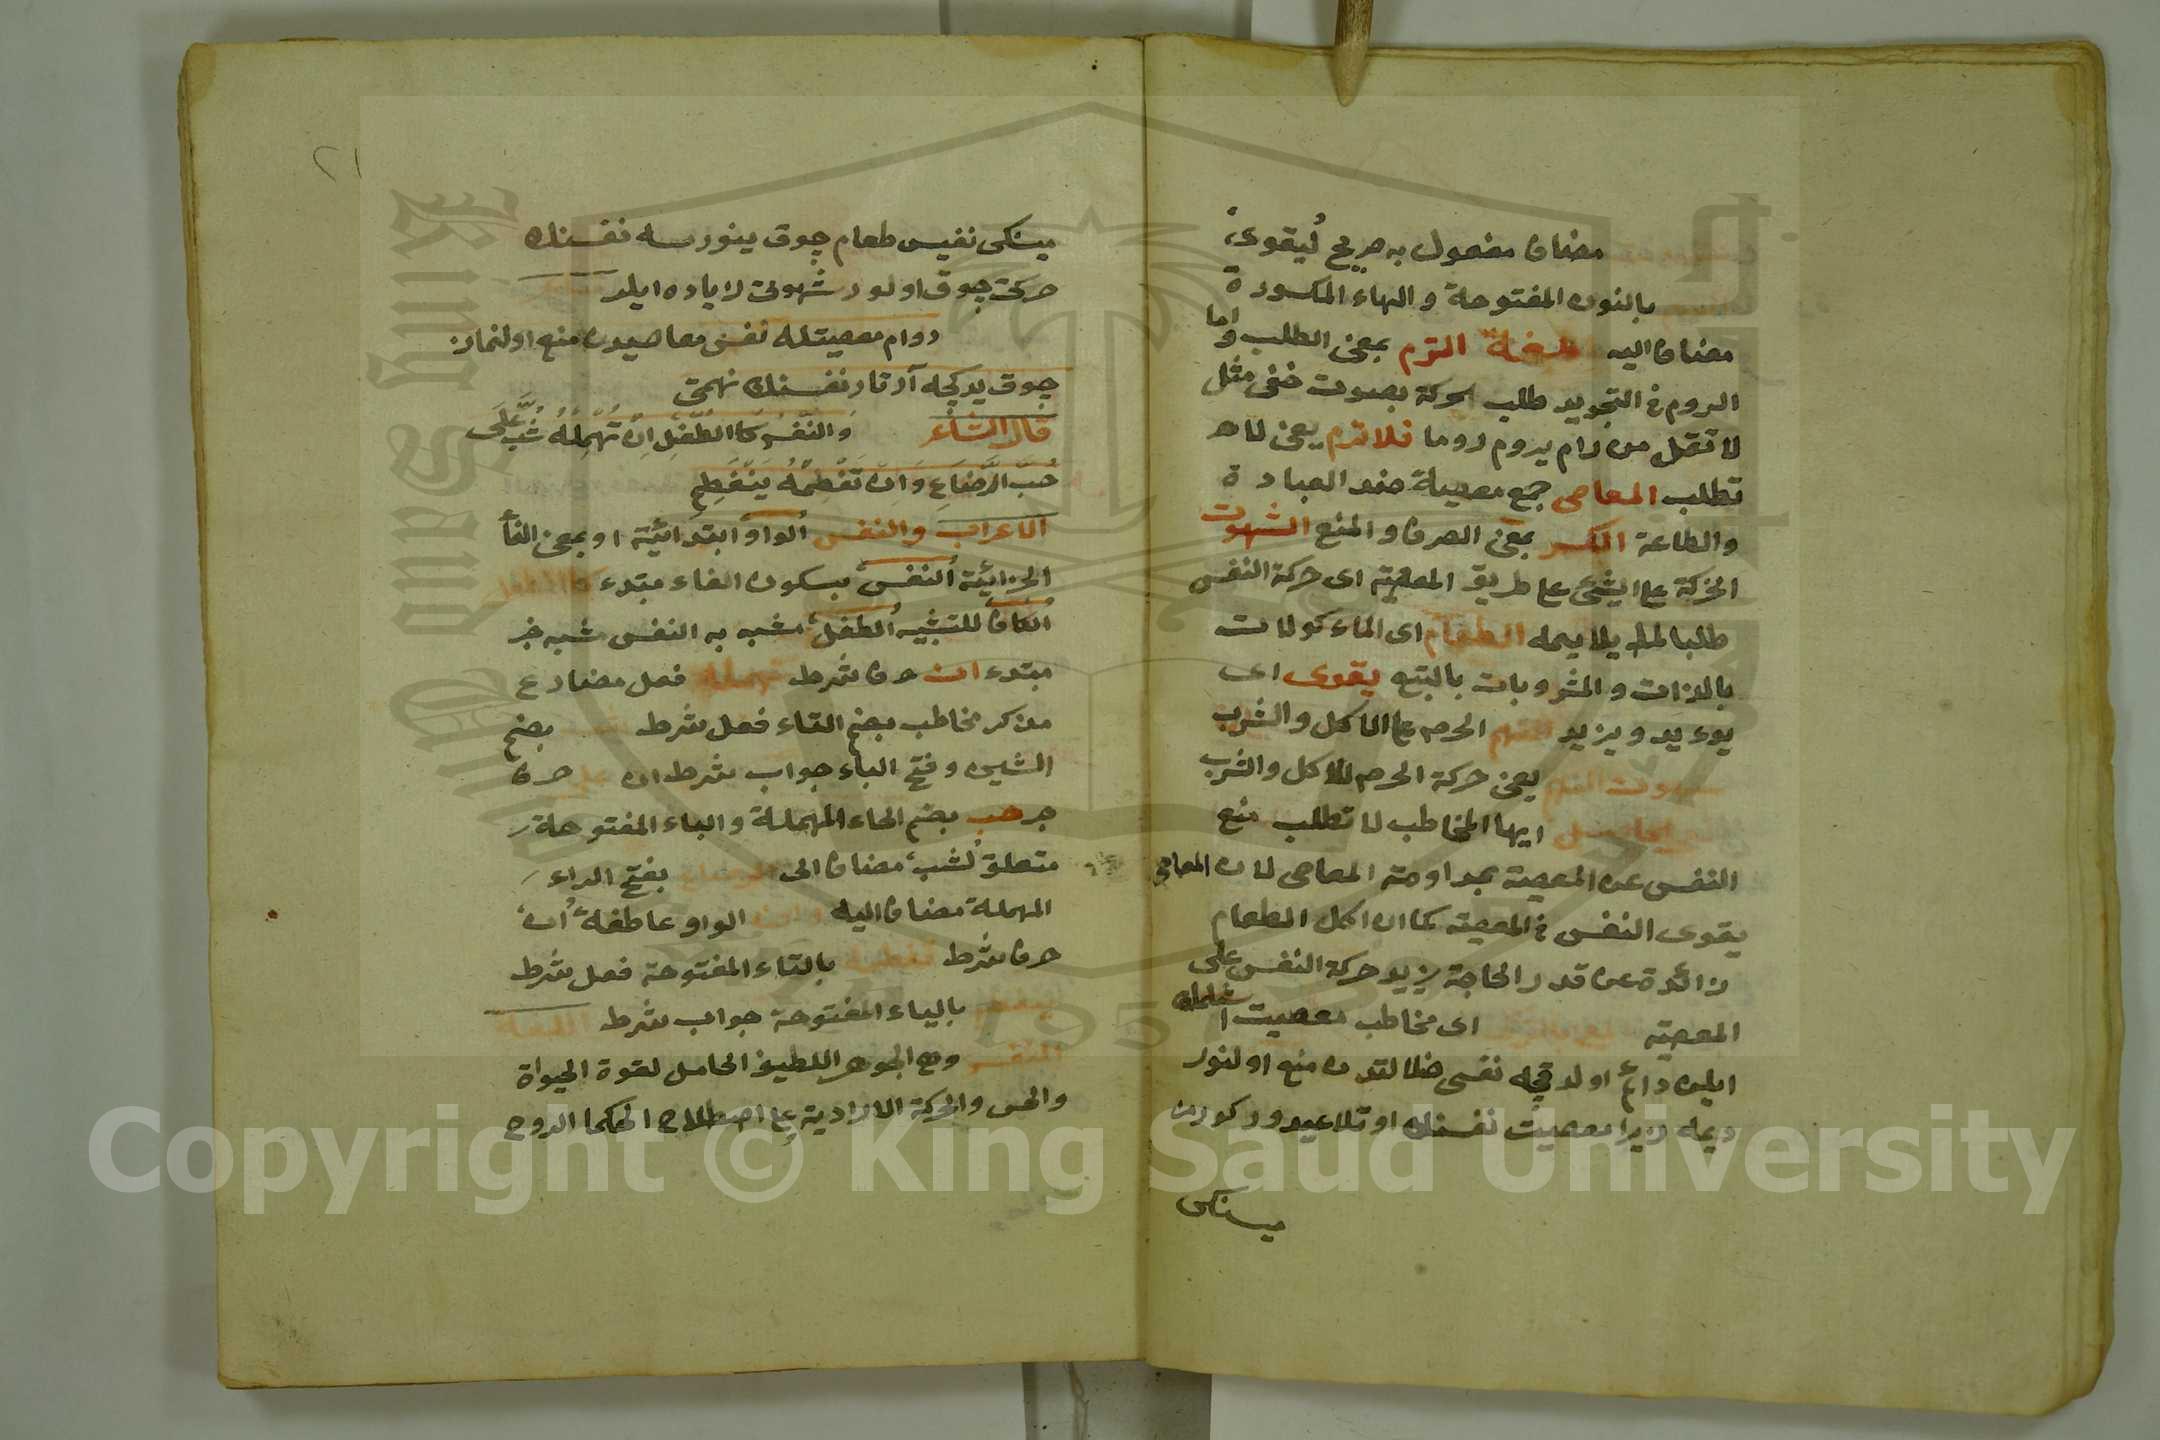 مضاف مفعول به صريح ليقوى
بالنون المفتوحة والهاء المكسورة
مضاف اليه اللغة الترم بمعنى الطلب واما
الروم في التجويد طلب الحركة بصوت خفى مثل
لا تقل من رام يروم روما فلا ترم يعنى لا
تطلب المعاصى جمع معصية ضد العبادة
والطاعة الكسر بمعنى الصرف والمنع الشهوت
الحركة على الشئ على طريق المعصية اى حركة النفس
طلبا لما يلايمه الطعام اى الماءكولات
بالذات والمشروبات بالتبع يقوى اى
يوءيد ويزيد النهم الحرص على الاكل والشرب
شهوت النهم يعنى حركة الحرص للاكل والشرب
ايها المخاطب لا تطلب منع
النفس عن المعصية بمداومة المعاصى لان المعاصى
يقوى النفس في المعصية كما ان اكل الطعام
زائدة عن قدر الحاجة يزيد حركة النفس على
المعصية اى مخاطب معصيت اشلمك
ايلن دائم اولدقجه نفسى ضلالتدن منع اولنور
ديمه زيرا معصيت نفسنك اوتلاعيدور كورمز
ميسنكى
٢١
مينكى نفيس طعام چوق ينورسه نفسنك
حركتى چوق اولور شهوتى زياده ايلر
دوام معصيتله نفس معاصيدن منع اولنماز
چوق يدكجه آرتار نفسنك نهمتى
قال الشاعر وَالنَّفْسُ كَالطِّفْلِ اِنْ تُهْمِلْهُ شَبَّ عَلَى
حُبِّ الرَّضَاعِ وَاِنْ تَفْطِمْهُ يَنْفَطِمِ
الاعراب والنفس الواو ابتدائية او بمعنى الفأ
الجزائية النفس بسكون الفاء مبتدء كالطفل
الكاف للتشبيه الطفل مشبه به النفس مشبه خبر
مبتدء ان حرف شرط تهمله فعل مضارع
مذكر مخاطب بضم التاء فعل شرط بضم
الشين وفتح الباء جواب شرط ان على حرف
جر حب بضم الحاء المهملة والباء المفتوحة
متعلق لشب مضاف الى الرضاع بفتح الراء
المهملة مضاف اليه وان الواو عاطفة ان
حرف شرط تفطمه بالتاء المفتوحة فعل شرط
ينفطم بالياء المفتوحة جواب شرط اللغة
النفس وهى الجوهر اللطيف الحامل لقوة الحيواة
والحس والحركة الارادية على اصطلاح الحكما الروح
Copyright © King Saud University
King Saud University
1957